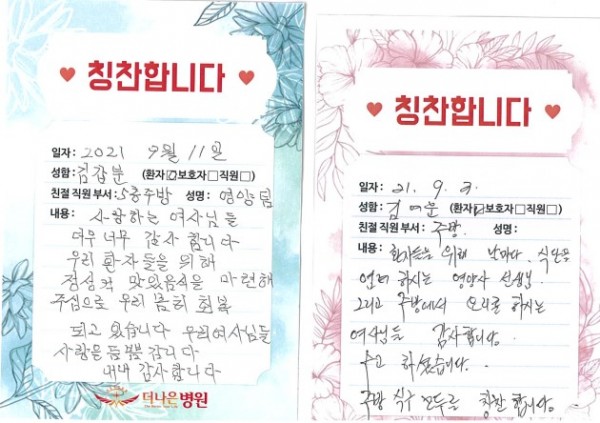 칭찬합니다
일자: 2021 9월 11일
성함: 김갑분 (환자☑보호자□직원□)
친절 직원 부서: 5층주방 성명: 영양팀
내용: 사랑하는 여사님들
너무 너무 감사 합니다
우리 환자들을 위해
정성껏 맛있음식을 마련해
주심으로 우리 몸이 회복
되고 있습니다 우리여사님들
사랑을 듬뿍 감니다
내내 감사합니다
더나은병원
칭찬합니다
일자: 21. 9. 9.
성함: 김여운 (환자☑보호자□직원□)
친절 직원 부서: 주방 성명:
내용: 환자들을 위해 날마다. 식단을
하시는 영양사 선생님.
그리고 주방에서 요리를 하시는
여사님들 감사합니다.
수고 하셨습니다.
주방 식구 모두를 칭찬 합니다.